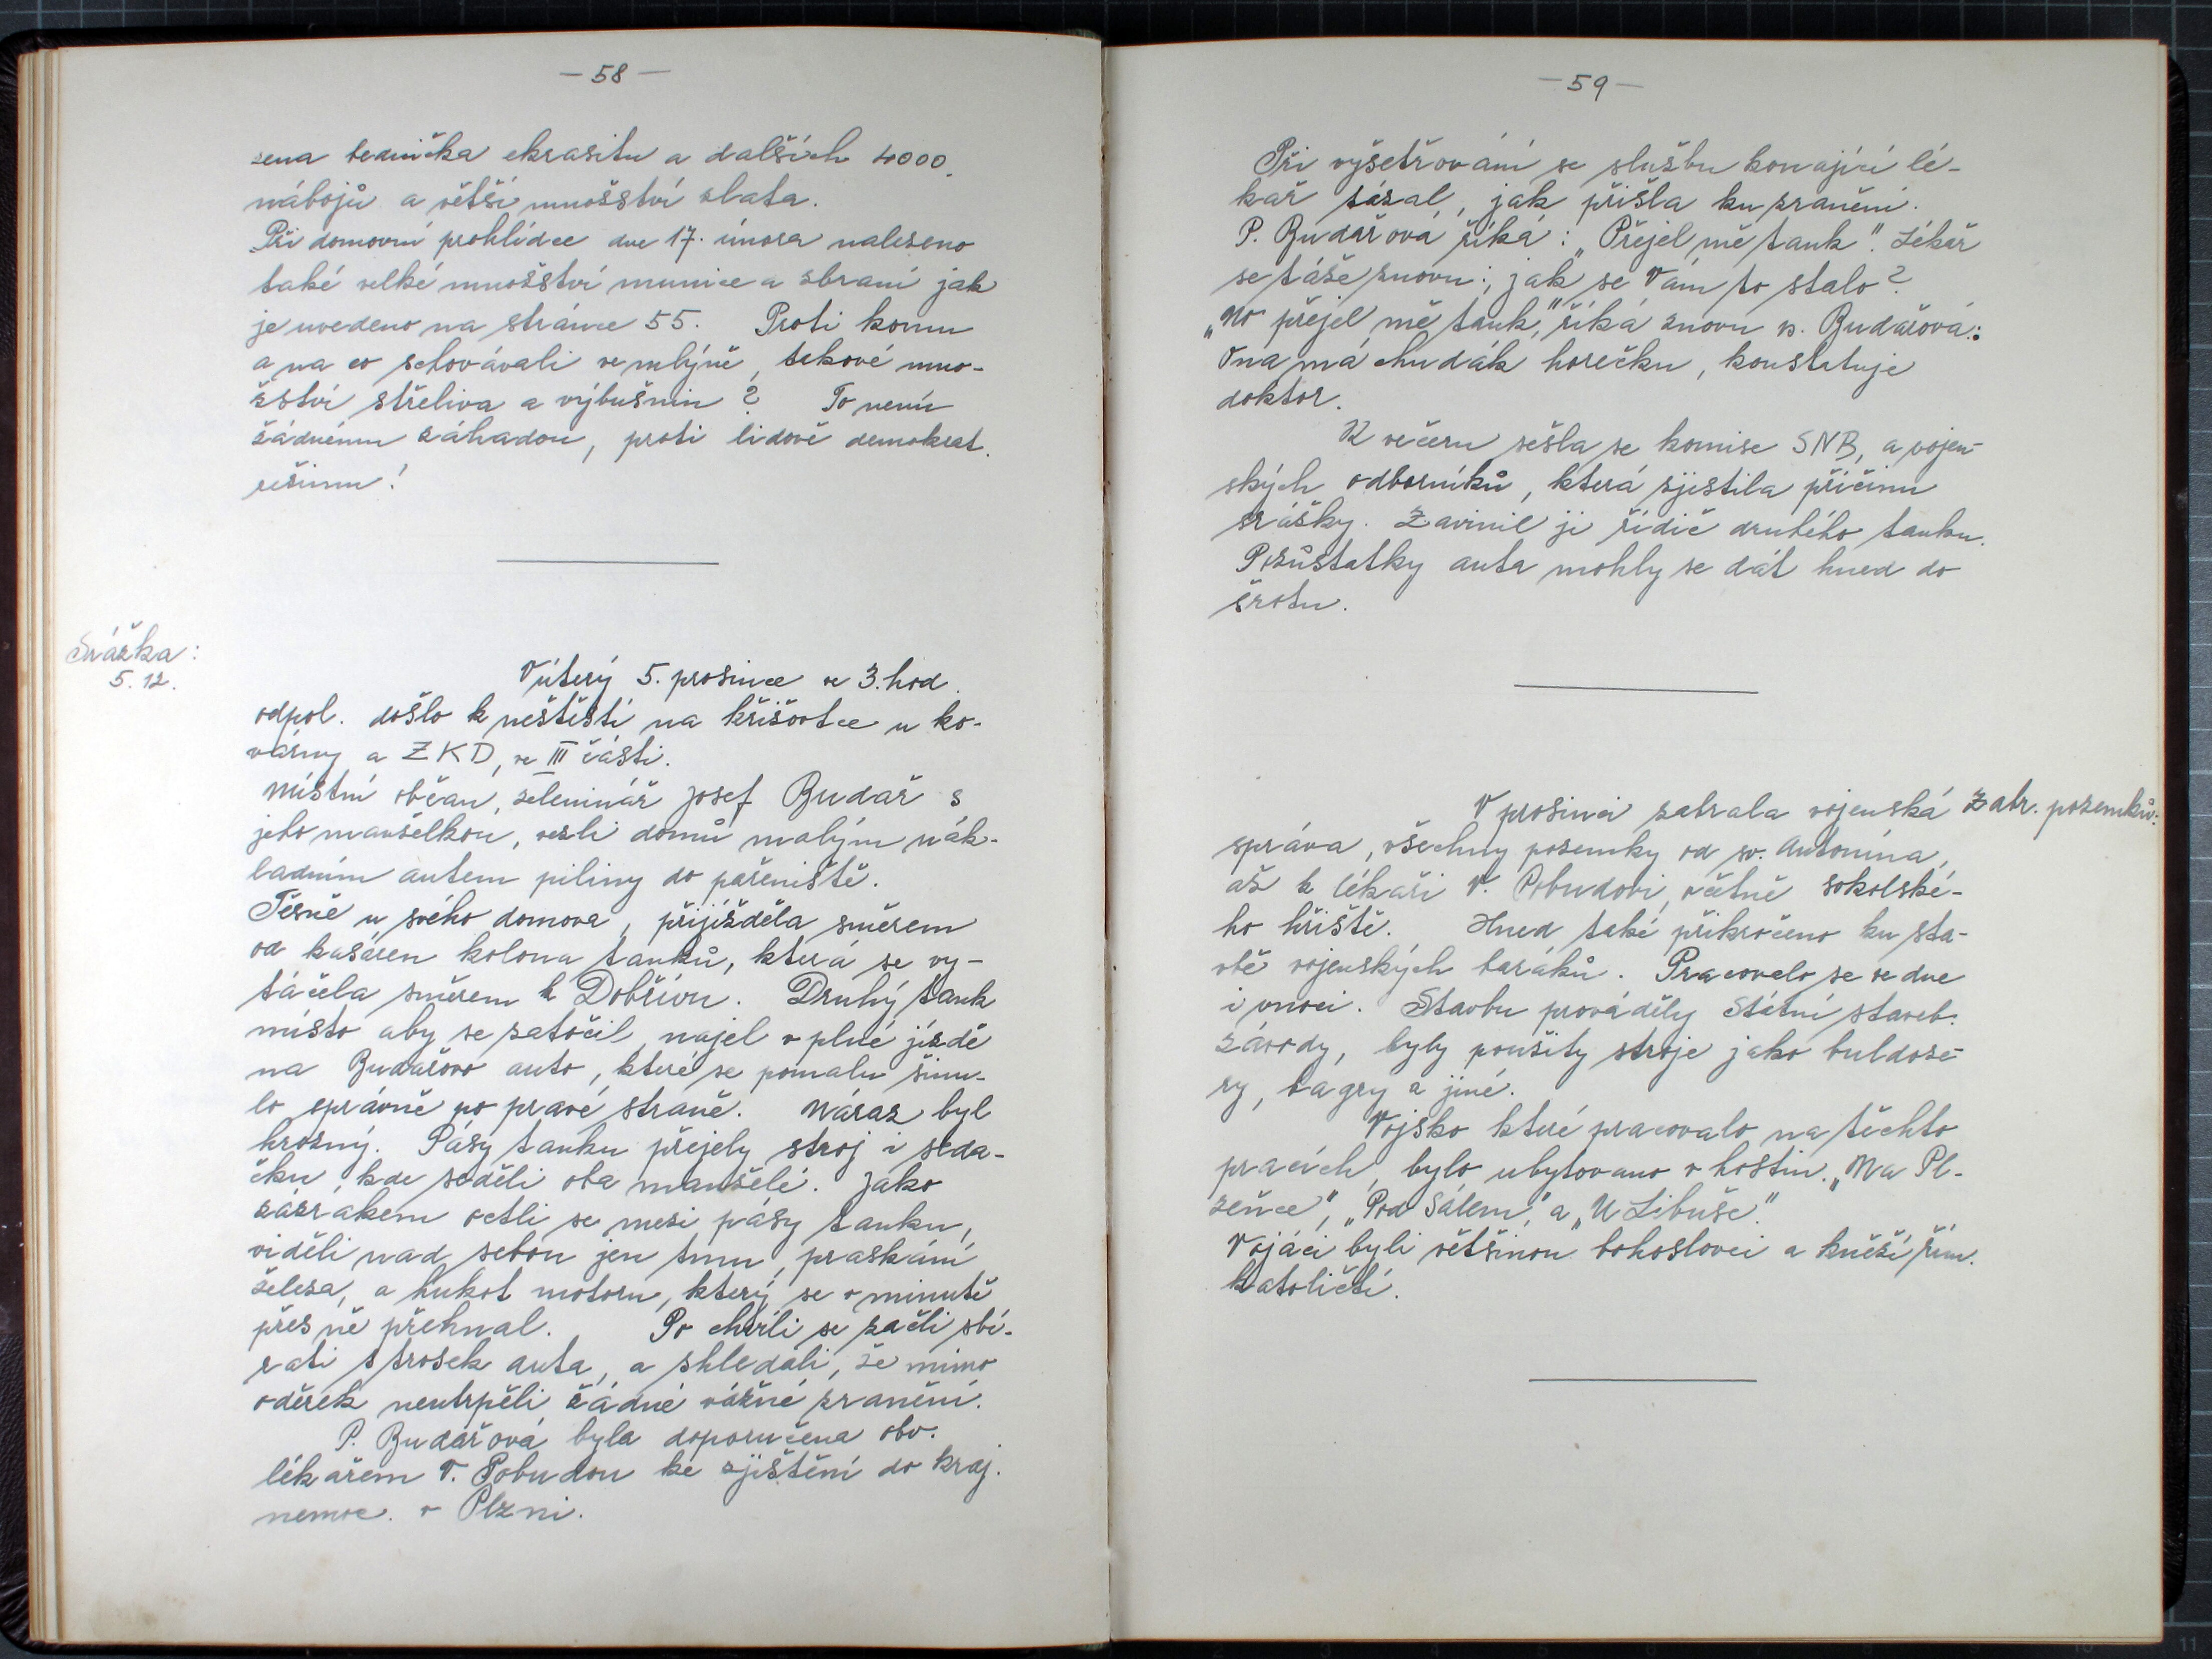 — 58 —
zena bednička ekrasitu a dalších 4000.
nábojů a větší množství zlata.
Při domovní prohlídce dne 17. února nalezeno
také velké množství munice a zbraní jak
je uvedeno na stránce 55. Proti komu
a na co schovávali ve mlýně, takové mno-
žství střeliva a výbušnin? To není
žádnému záhadou, proti lidově demokrat.
režimu!
Srážka:
5. 12.
V úterý 5. prosince ve 3. hod.
odpol. došlo k neštěstí na křižovtce u ko-
várny a ZKD, ve III části.
Místní občan, zeleninář Josef Budař s
jeho manželkou, vezli domů malým nák-
ladním autem piliny do pařeniště.
Těsně u svého domova, přijížděla směrem
od kasáren kolona tanků, která se vy-
táčela směrem k Dobřívu. Druhý tank
místo aby se zatočil, najel v plné jízdě
na Budařovo auto, které se pomalu šinu-
lo správně po pravé straně. Náraz byl
hrozný. Pásy tanku přejely stroj i seda-
čku kde seděli oba manželé. Jako
zázrakem octli se mezi pásy tanku,
viděli nad sebou jen tmu, praskání
železa, a hukot motoru, který se v minutě
přes ně přehnal. Po chvíli se začli sbí-
rati z trosek auta, a shledali, že mimo
oděrek neutrpěli žádné vážné zranění.
P. Budařová byla doporučena obv.
lékařem V. Pobudou ke zjištění do kraj.
nemoc. v Plzni.
— 59 —
Při vyšetřování se službu konající lé-
kař tázal, jak přišla ku zranění.
P. Budařová říká: „Přejel mě tank". Lékař
se táže znovu:, jak se Vám to stalo?
„No přejel mě tank," říká znovu p. Budařová:
Ona má chudák horečku, konstatuje
doktor.
K večeru sešla se komise SNB, a vojen-
ských odborníků, která zjistila příčinu
srážky. Zavinil ji řidič druhého tanku.
Pozůstatky auta mohly se dát hned do
šrotu.
Zabr. pozemků:
V prosinci zabrala vojenská
správa, všechny pozemky od sv. Antonína,
až k lékaři V. Pobudovi, včetně sokolské-
ho hřiště. Hned také přikročeno ku sta-
vbě vojenských baráků. Pracovalo se ve dne
i v noci. Stavbu prováděly Státní staveb.
závody, byly použity stroje jako buldoze-
ry, bagry a jiné.
Vojsko které pracovalo na těchto
pracích, bylo ubytováno v hostin. „Na Pl-
zeňce", „Pod Sálem", a „U Libuše."
Vojáci byli většinou bohoslovci a kněží řím.
katoličtí.